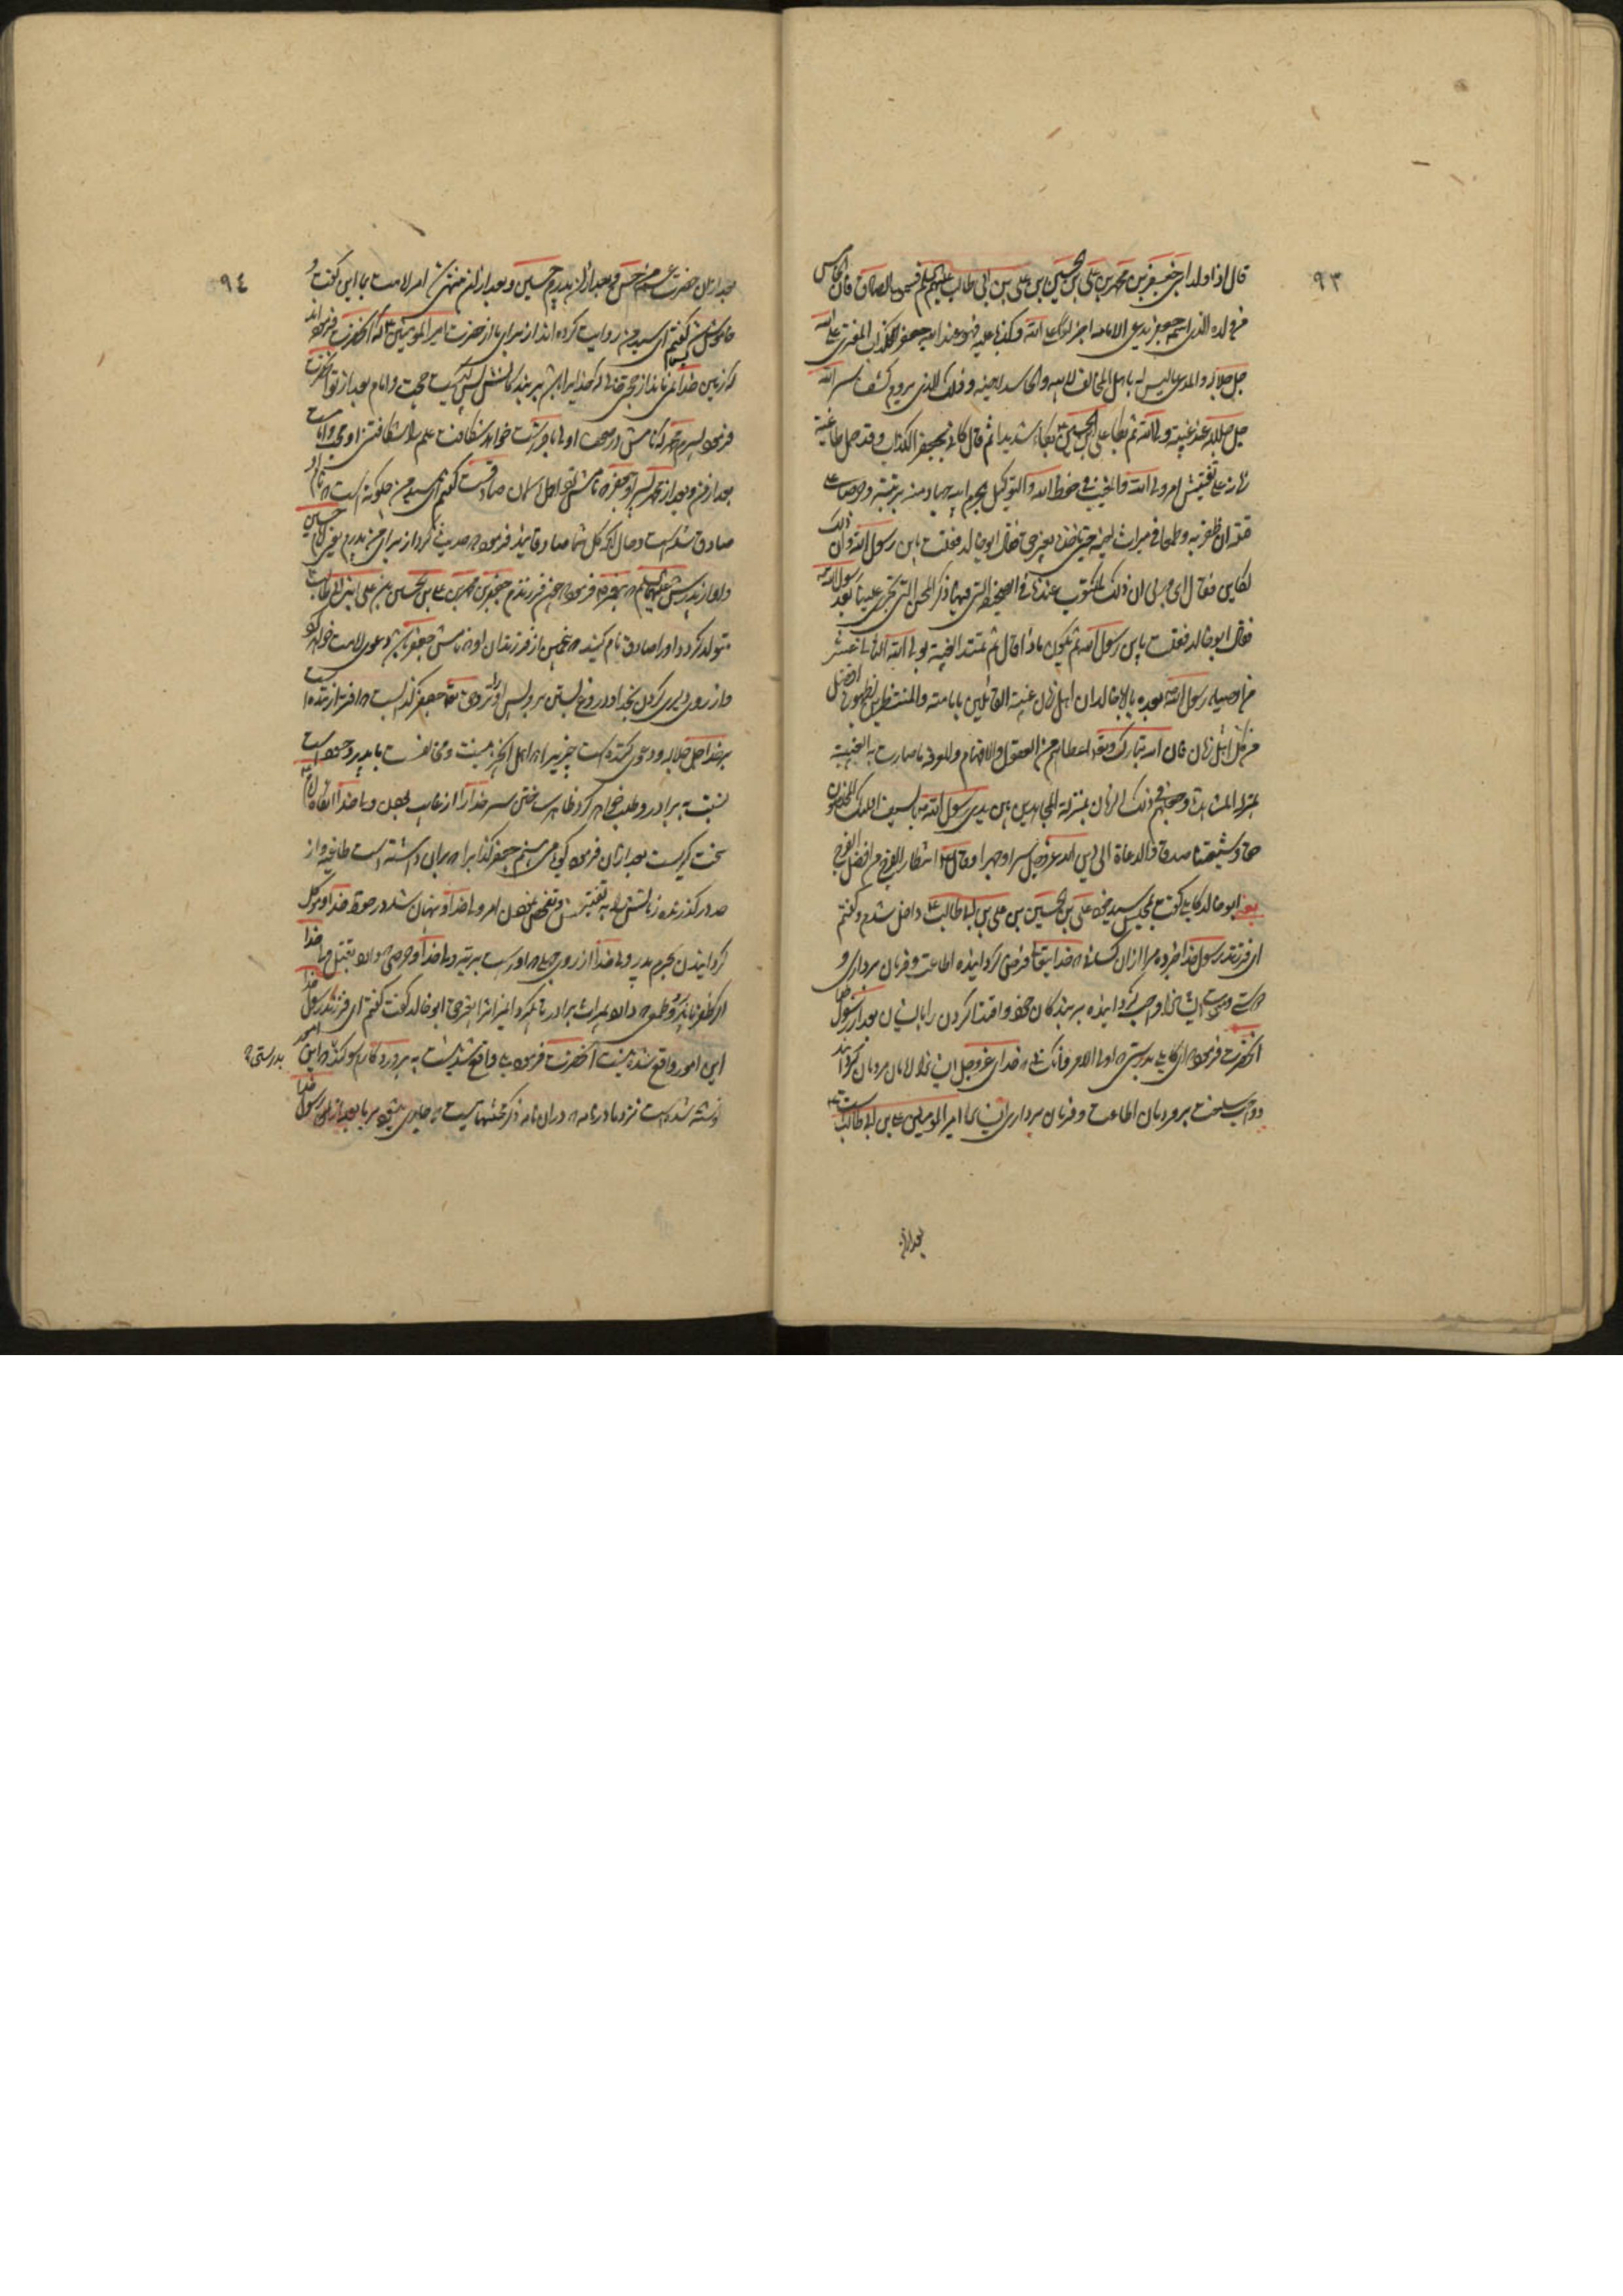 ٩٣
قال اذا ولد ابنی جعفر بن محمد بن علی بن الحسین بن علی بن ابی طالب علیهم السلم فسموه الصادق فان الخامس
من ولده الذی اسمه جعفر یدعی الامامه اجتراء علی الله وکذبا علیه فهو عند الله جعفر الکذاب المفتری علی الله
جل جلاله والمدعی لما لیس له باهل المخالف لابیه والحاسد لاخیه وذلک الذی یروم کشف سر الله
جل جلاله عند غیبة ولی الله ثم بکا علی بن الحسین ع بکاء شدیدا ثم قال کانی بجعفر الکذاب وقد حمل طاغیة
زمانه علی تفتیش امر ولی الله والمغیب فی حفظ الله والتوکیل بحرم ابیه جهلا منه برتبته وحرصا علی
قتله ان ظفر به وطمعا فی میراث اخیه حتی یاخذه بغیر حق فقال ابو خالد فقلت یابن رسول الله وان ذلک
لکاین فقال ای وربی ان ذلک لمکتوب عندنا فی الصحیفة التی فیها ذکر المحن التی تجری علینا بعد رسول الله
فقال ابو خالد فقلت یابن رسول الله ثم یکون ماذا قال ثم تمتد الغیبة بولی الله الثانی عشر
من اوصیاء رسول الله بعده یا ابا خالد ان اهل زمان غیبته القائلین بامامته والمنتظرین لظهوره افضل
من کل اهل زمان فان الله تبارک وتعالی اعطاهم من العقول والافهام والمعرفة ما صارت به الغیبة
بمنزلة المشاهدة وجعلهم فی ذلک الزمان بمنزلة المجاهدین بین یدی رسول الله بالسیف اولئک المخلصون
حقا وشیعتنا صدقا والدعاة الی دین الله عز وجل سرا وجهرا وقال ع انتظار الفرج من افضل الفرج
یعنی ابو خالد کابلی گفت بمجلس سید خود علی بن الحسین بن علی بن ابی طالب ع داخل شدم وگفتم
ای فرزند رسول خدا خبر ده مرا از آن کسانی که خدایتعالی فرض گردانیده اطاعت وفرمان برداری و
دوستی ومودت ایشانرا و واجب گردانیده بر بندگان خود اقتدا کردن را بایشان بعد از رسول خدا
آنحضرت فرمود ای کابلی بدرستی که اولی الامر آنکسانی که خدای عز وجل ایشانرا امامان مردمان گردانید
و واجب ساخت بر مردمان اطاعت وفرمان برداری ایشان را امیر المومنین علی بن ابی طالب است
بعد از آن
٩٤
بعد از آن حضرت عم من حسن و بعد از آن پدرم حسین وبعد از آن منتهی شد امر امامت بما این گفت و
خاموش شد گفتم ای سید من روایت کرده اند از برای ما از حضرت امیر المومنین ع که آنحضرت فرموده اند
که زمین خدا خالی نماند از حجتی که خدایرا باشد بر بندگانش پس کیست حجت وامام بعد از تو آنحضرت
فرمود پسرم محمد که نامش در صحف اولی باقر است خواهد شکافت علم را شکافتنی او حجت وامام است
بعد از من وبعد از محمد پسر او جعفر که نامش نزد اهل آسمان صادق است گفتم ای سید من چگونه است که نام او
صادق شده است وحال آنکه کل شما صادقانید فرمود که حدیث کرد از برای من پدرم یعنی امام حسین
واو از پدرش علیهما السلم که پیغمبر فرمود که چون فرزندم جعفر بن محمد بن علی بن حسین بن علی ابن ابی طالب ع
متولد گردد او را صادق نام کنید که پنجمین از فرزندان او که نامش جعفر باشد دعوی امامت خواهد کرد
واز روی دلیری کردن بخدا ودروغ بستن برو پس او نزد حق تعالی جعفر کذابست که افترا زننده است
بر خدا جل جلاله ودعوی کننده است چیزیرا که اهل آنچیز نیست ومخالفست با پدر وحسود است
نسبت به برادر وطلب خواهد کرد ظاهر ساختن سر خدا را از غایب بودن ولی خدا آنگاه امام ع
سخت گریست بعد از آن فرمود گویا می بینم جعفر کذاب را که بر آن داشته است طاغیه و از
حد در گذرنده زمانش را به تفتیش وتفحص نمودن امر ولی خدا و پنهان شده در حفظ خدا وموکل
گردانیدن بحرم پدر ولی خدا از روی جهلی که اوراست برتبه ولی خدا وحرصی که دارد بقتل ولی خدا
اگر ظفر یابد برو وطمعی که دارد بمیراث برادر تا بگیرد آنمیراثرا بغیر حق ابو خالد گفت گفتم ای فرزند رسول خدا
این امور واقع شدنیست آنحضرت فرمود بلی واقع شدنیست به پروردگارم سوگند که این امور
بدرستی که
نوشته شده است نزد ما در نامه که در آن نامه ذکر محنتهاییست که جاری میشود بر ما بعد از رسول خدا